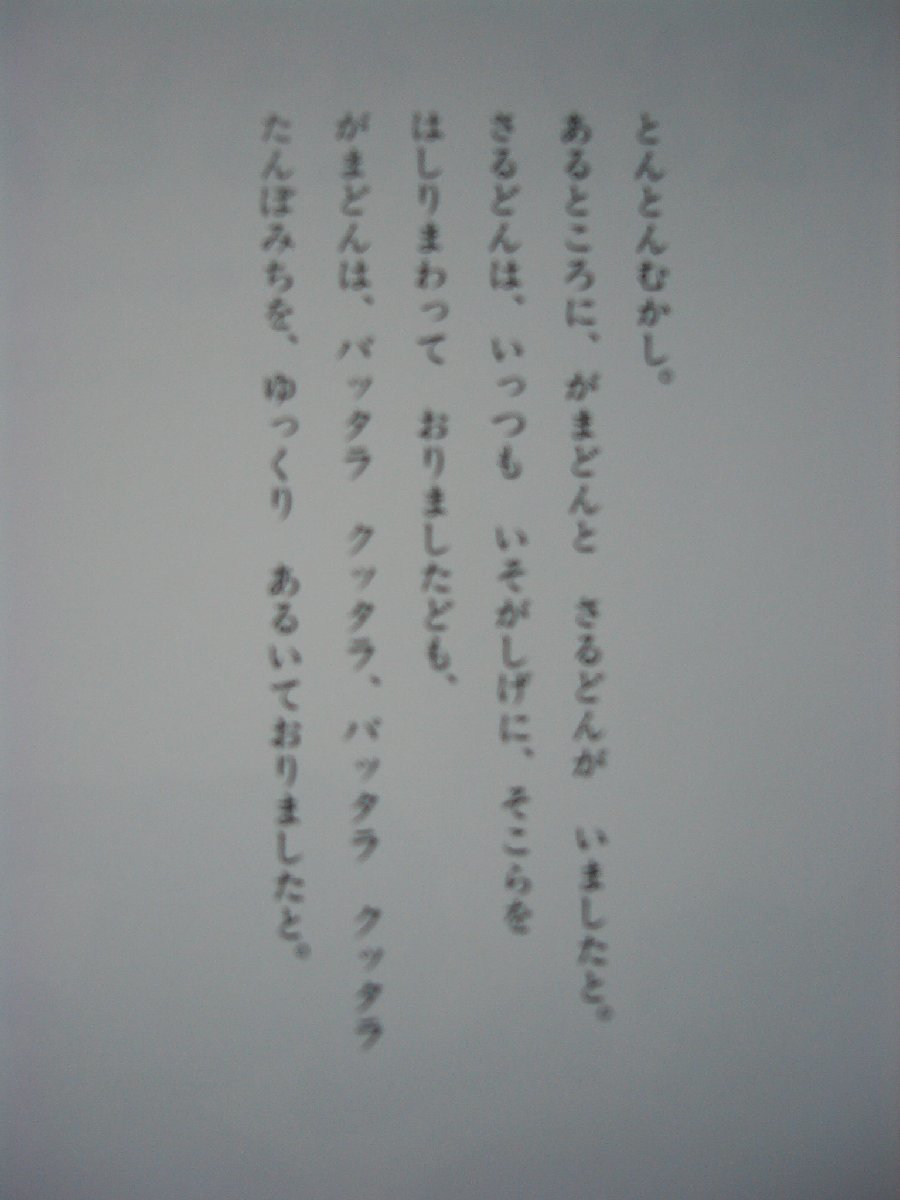 とんとんむかし。
あるところに、がまどんと　さるどんが　いましたと。
さるどんは、いっつも　いそがしげに、そこらを
はしりまわって　おりましたども、
がまどんは、バッタラ　クッタラ、バッタラ　クッタラ
たんぼみちを、ゆっくり　あるいておりましたと。